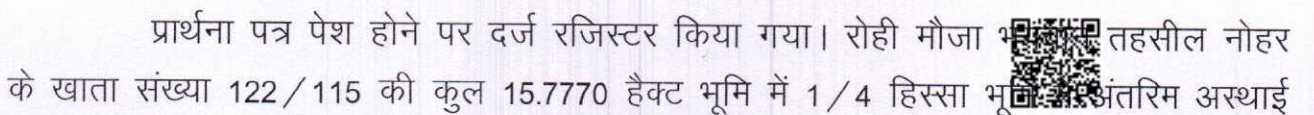 प्रार्थना पत्र पेश होने पर दर्ज रजिस्टर किया गया। रोही मौजा तहसील नोहर
के खाता संख्या 122/115 की कुल 15.7770 हैक्ट भूमि में 1/4 हिस्सा अंतरिम अस्थाई